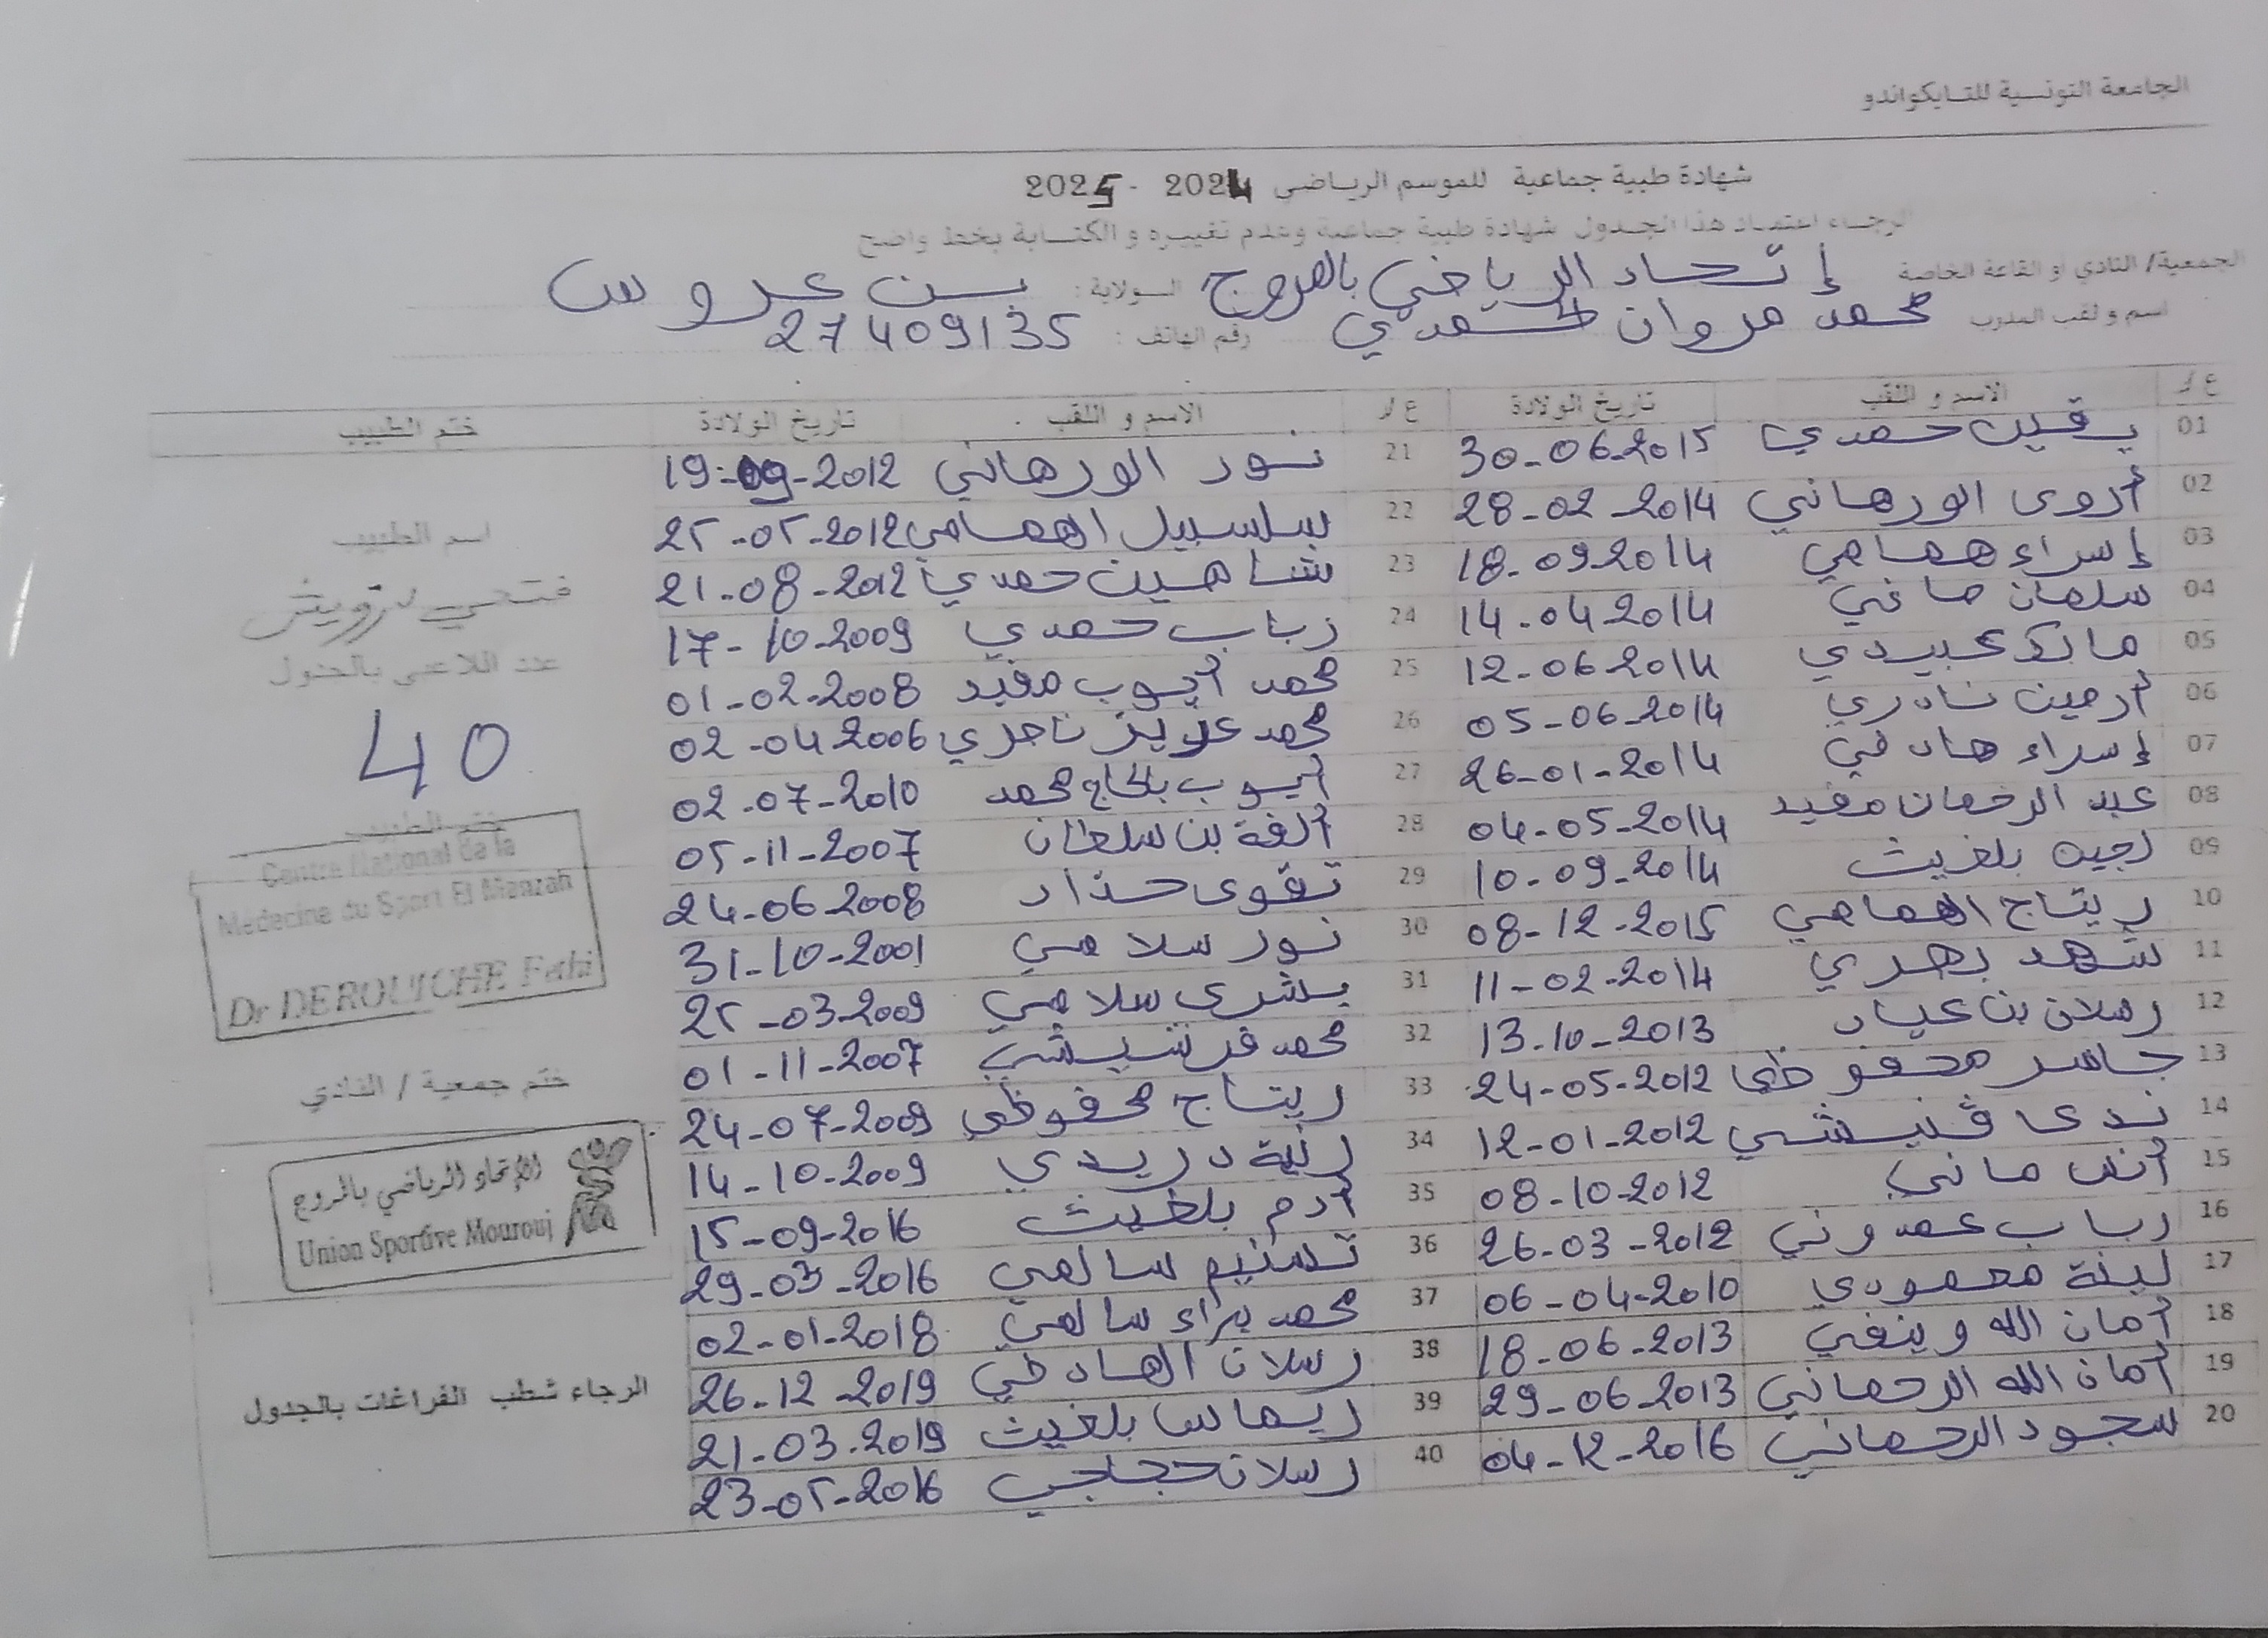 الجامعة التونسية للتايكواندو
شهادة طبية جماعية للموسم الرياضي 2024 - 2025
الرجاء اعتماد هذا الجدول شهادة طبية جماعية وعدم تغييره و الكتابة بخط واضح
الجمعية/ النادي او القاعة الخاصة إتحاد الرياضي بالمروج الولاية : بن عروس
اسم و لقب المدرب محمد مروان الحمدي رقم الهاتف : 27409135
ع/ر الاسم و اللقب تاريخ الولادة ع/ر الاسم و اللقب تاريخ الولادة ختم الطبيب
01 يقين حمدي 30-06-2015 21 نور الورهاني 19-09-2012
02 أروى الورهاني 28-02-2014 22 سلسبيل الهمامي 25-05-2012
03 إسراء همامي 18-09-2014 23 شاهين حمدي 21-08-2012
04 سلمان صافي 14-04-2014 24 رباب حمدي 17-10-2009
05 مالك عبيدي 12-06-2014 25 محمد أيوب مفيد 01-02-2008
06 أرمين نادري 05-06-2014 26 محمد عزيز ناجري 02-04-2006
07 إسراء هادفي 26-01-2014 27 أيوب بالحاج محمد 02-07-2010
08 عبد الرحمان مفيد 04-05-2014 28 ألفة بن سلطان 05-11-2007
09 لجين بلغيث 10-09-2014 29 تقوى حذاد 24-06-2008
10 ريتاج الهمامي 08-12-2015 30 نور سلامي 31-10-2001
11 شهد بحري 11-02-2014 31 بشرى سلامي 25-03-2009
12 رسلان بن عياد 13-10-2013 32 محمد 01-11-2007
13 جاسر محفوظي 24-05-2012 33 ريتاج محفوظي 24-07-2009
14 ندى 12-01-2012 34 رنية دريدي 14-10-2009
15 أنس ماني 08-10-2012 35 أدم بلغيث 15-09-2016
16 رباب عمدوني 26-03-2012 36 تسنيم سالمي 29-03-2016
17 لينة معمودي 06-04-2010 37 محمد براء سالمي 02-01-2018
18 أمان الله وينفي 18-06-2013 38 رسلان الهادفي 26-12-2019
19 أمان الله الرحماني 29-06-2013 39 ريماس بلغيث 21-03-2019
20 سجود الرحماني 04-12-2016 40 رسلان حجاجي 23-05-2016
اسم الطبيب
فتحي درويش
عدد اللاعبي بالجدول
40
ختم الطبيب
Centre National de la
Médecine du Sport El Manzah
Dr DEROUICHE Fethi
ختم جمعية / النادي
الإتحاد الرياضي بالمروج
Union Sportive Mourouj
الرجاء شطب الفراغات بالجدول